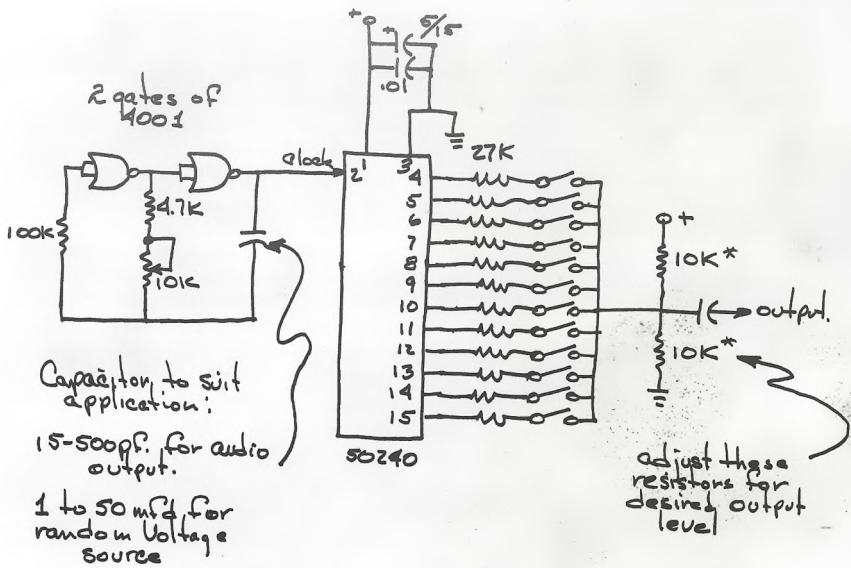 +
+
5/15
.01
2 gates of
4001
clock
2
1
3
27K
4
5
6
7
8
9
10
11
12
13
14
15
50240
100K
4.7K
101K
+
10K*
output.
10K*
Capacitor, to suit
application:
15-500pf. for audio
output.
1 to 50 mfd for
random Voltage
source
adjust these
resistors for
desired output
level